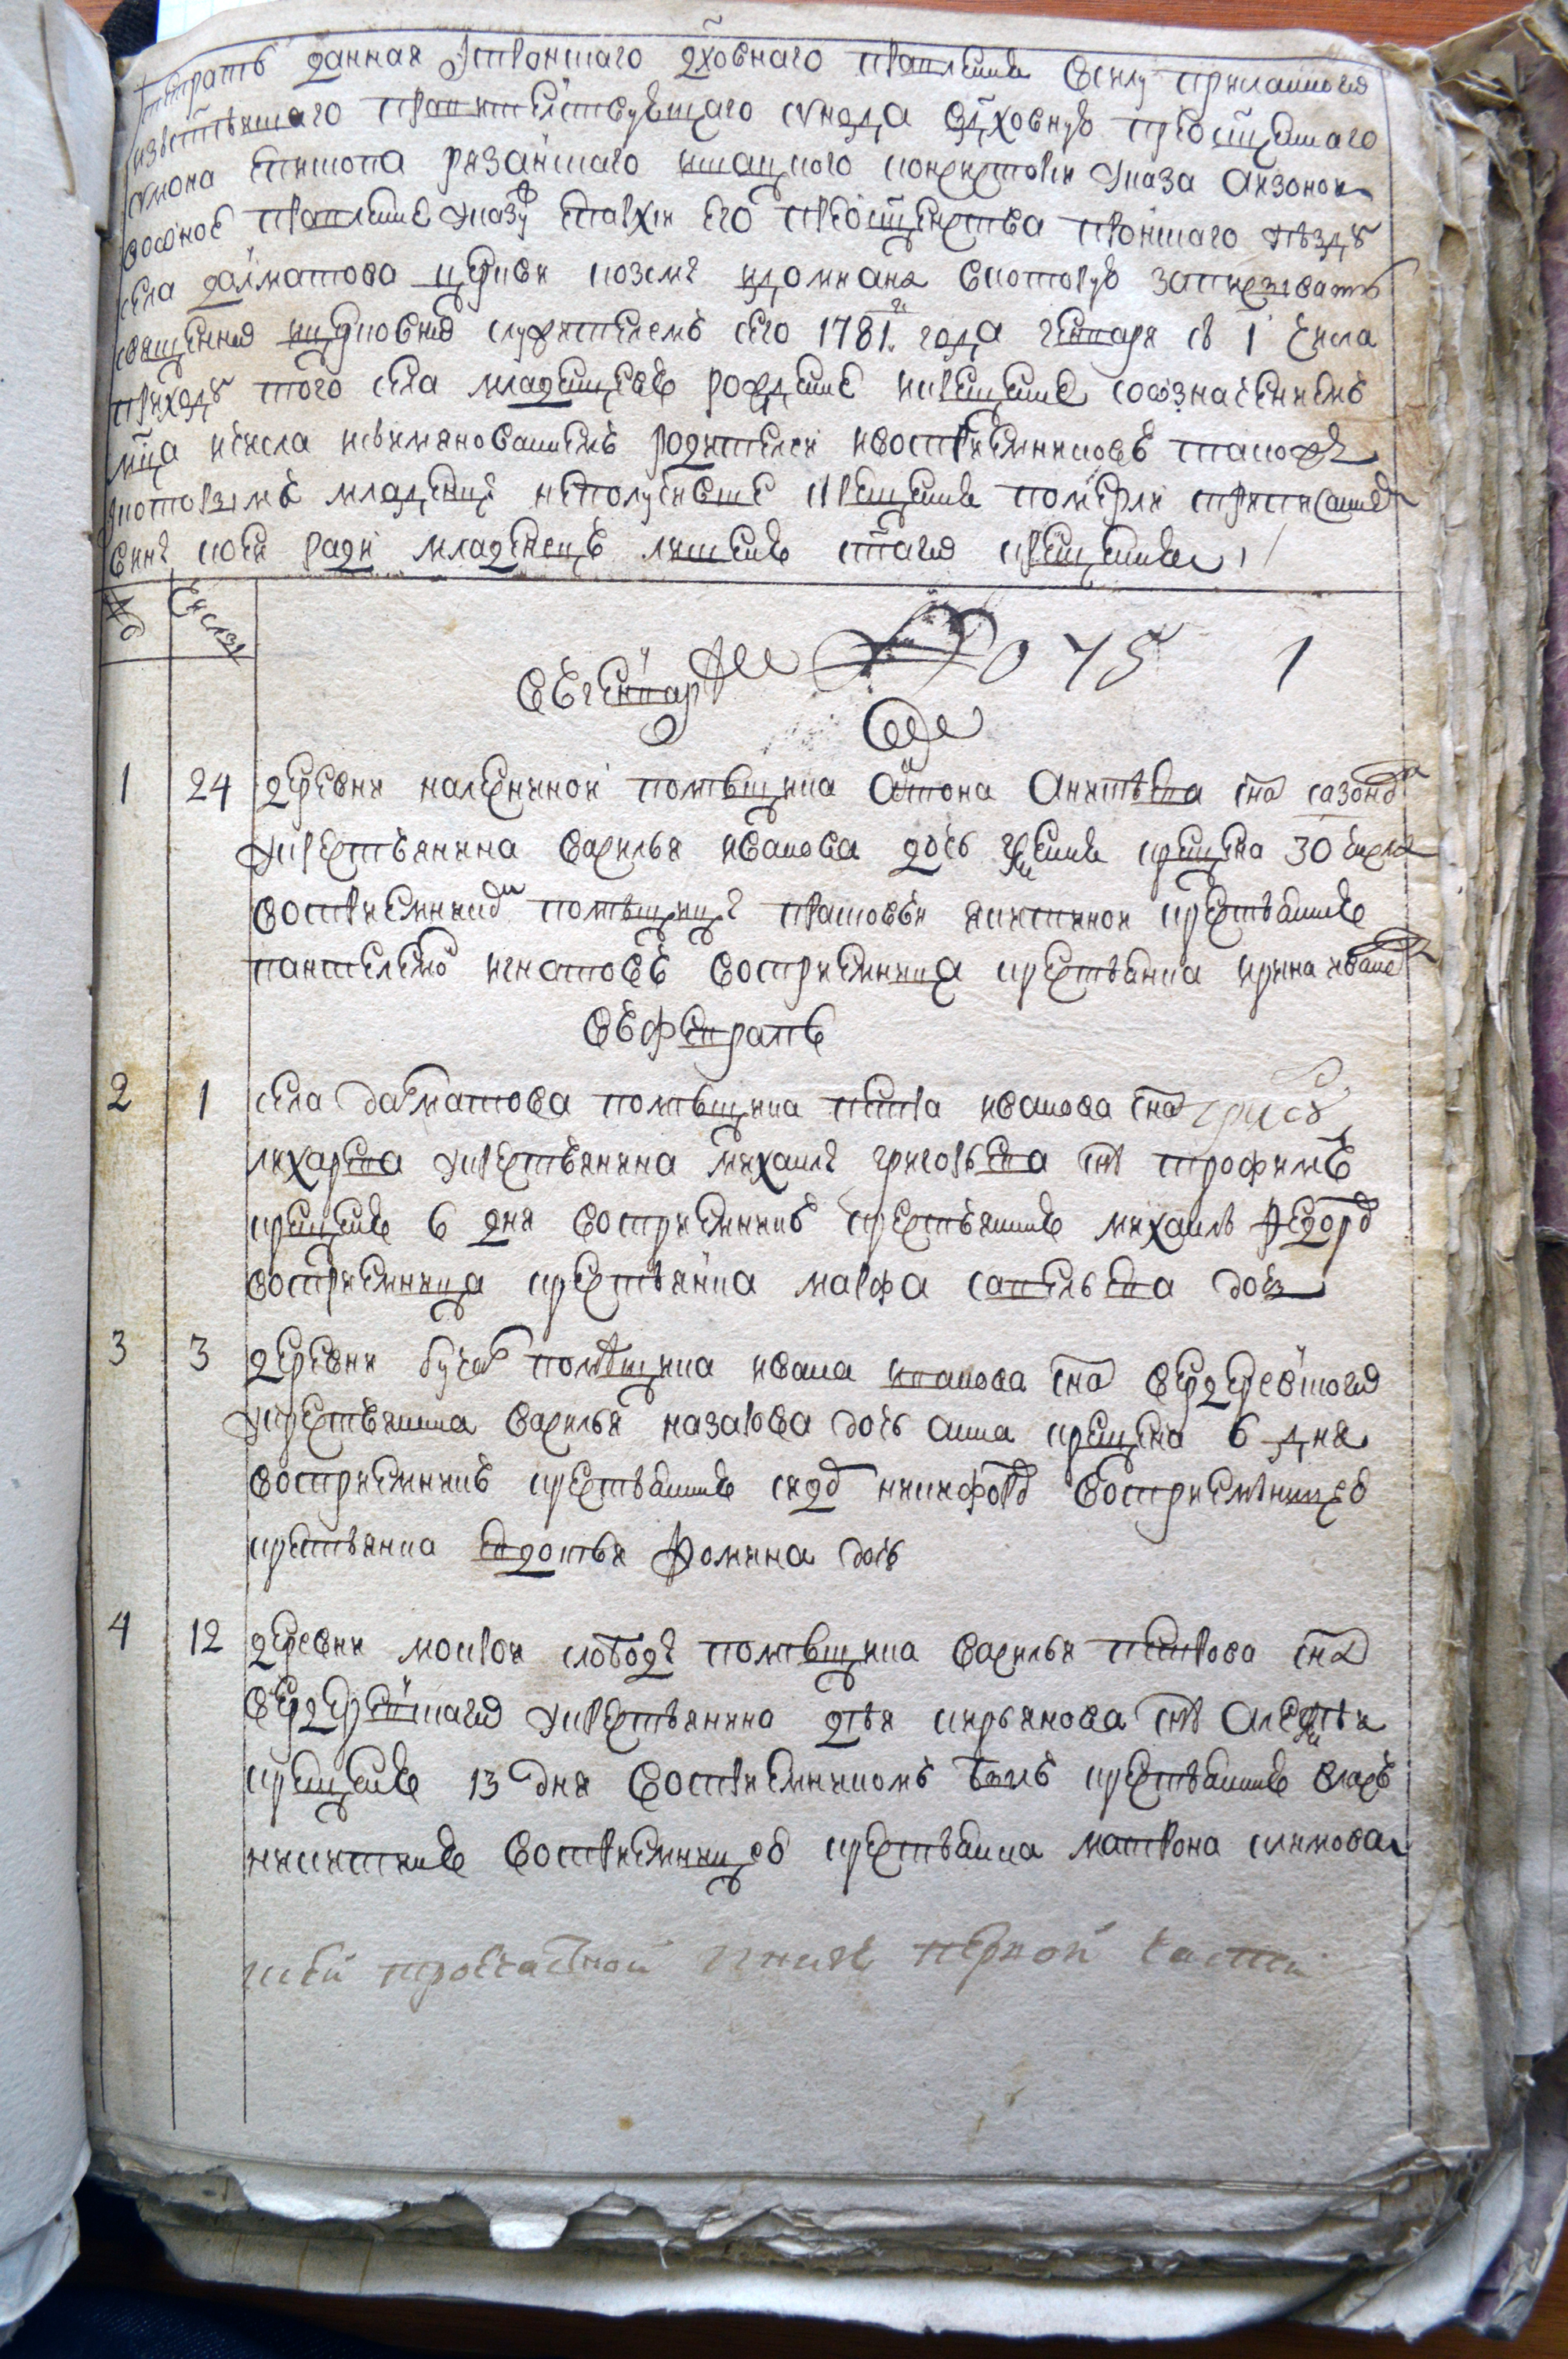 тетрать данная Ис пронскаго дховнаго правления всилу присланного
изсвятѣишаго правителствующаго синода вдховную преосщеннаго
симона епископа рязанскаго ишацкого консисторию указа аизоной
воное правление указу епархии его преосщенства пронскаго уѣзду
села далматова церкви козмы идомиана вкоторую записывать
священно ицерковно служителемъ сего 1781г года генваря съ 1 числа
приходу того села младенцевъ рождение икрещение созначениемъ
мца ичисла исимянованиемъ родителей ивосприемниковъ такожъ
которымъ младенцы неполучивше крещения померли приписаниемъ
вины коей ради младенецъ лишенъ стаго крещения
№ числы
вгенварѣ 045 1
1 24 деревни каленинской помѣщика антона аникѣева сна сазонова
у крестьянина василья иванова дочь ксения крещена 30 числа
восприемникомъ помѣщицы прасковьи якискиной крестьянинъ
пантелемо игнатовъ восприемница крестьянка ирина иванова
въ февралѣ
2 1 села далматова помѣщика петра иванова сна
лихарева у крестьянина михаилы григорьева снъ трофимъ
крещенъ 6 дня восприемникъ крестьянинъ михаилъ федоровъ
восприемница крестьянка марфа савельева дочь
3 3 деревни помѣщика ивана иванова сна вердеревского
у крестьянина василья назарова дочь анна крещена 6 дня
восприемникъ крестьянинъ никифоровъ восприемницею
крестьянка евдотья фомина дочь
4 12 деревни мокрой слободы помѣщика василья петрова сна
вердеревскаго у крестьянина кирьянова снъ алексѣй
крещенъ 13 дня восприемникомъ былъ крестьянинъ власъ
никитинъ восприемницею крестьянка матрона климова
первой части